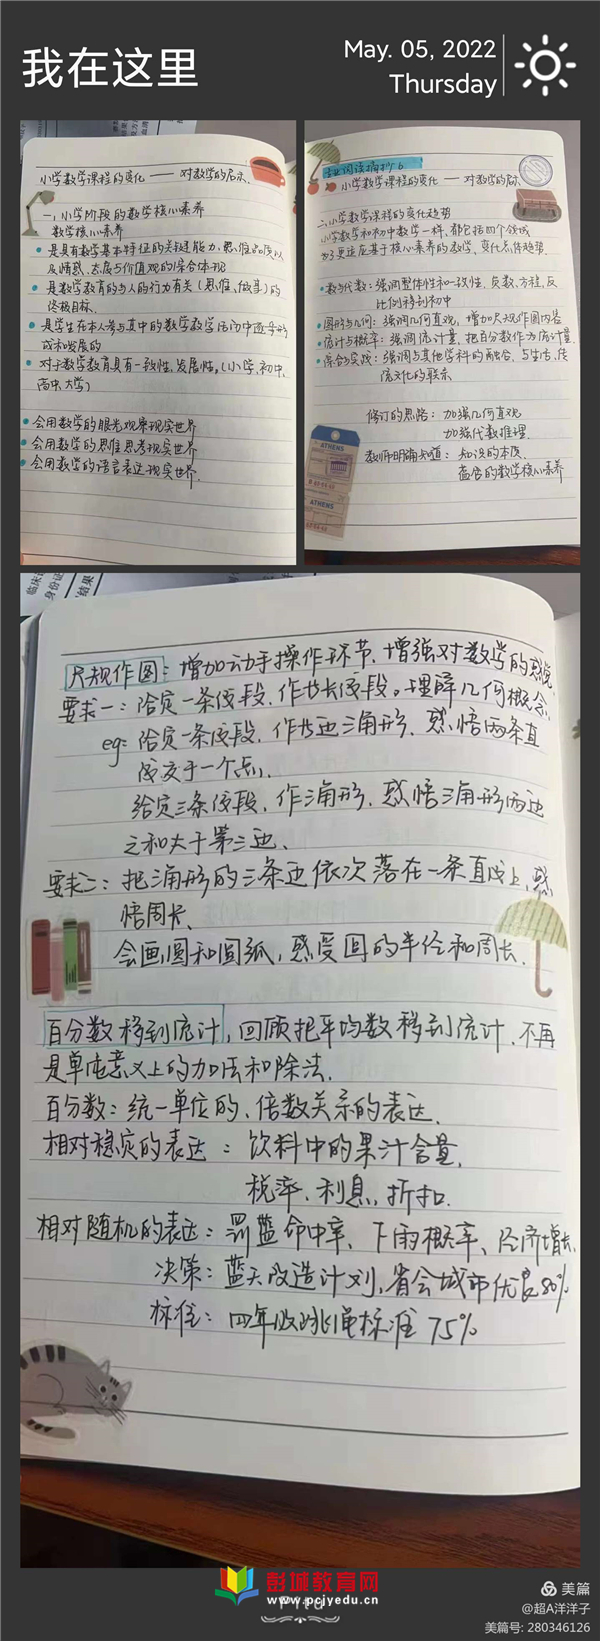 我在这里
May. 05, 2022
Thursday
小学数学课程的变化——对教学的启示
一、小学阶段的数学核心素养
数学核心素养
是具有数学基本特征的关键能力、思维品质以
及情感、态度与价值观的综合体现
是数学教育的与人的行为有关(思维、做事)的
终极目标
是学生在本人参与其中的数学教学活动中逐步形
成和发展的
对于数学教育具有一致性、发展性。(小学、初中、
高中、大学)
会用数学的眼光观察现实世界
会用数学的思维思考现实世界
会用数学的语言表达现实世界
专业阅读摘抄6
小学数学课程的变化——对教学的启示
二、小学数学课程的变化趋势
小学数学和初中数学一样,都包括四个领域
为了更适应基于核心素养的教学,变化点传趋势.
数与代数:强调整体性和一致性.负数、方程、反
比例移到初中
图形与几何:强调几何直观,增加尺规作图内容
统计与概率:强调统计量,把百分数作为统计量
综合与实践:强调与其他学科的融合、与生活、传
统文化的联系
修订的思路:加强几何直观
加强代数推理.
教师明确知道:知识的本质
蕴含的数学核心素养
ATHENS
ATHENS
尺规作图:增加动手操作环节,增强对数学的感觉
要求一:给定一条线段,作等长线段。理解几何概念.
eg:给定一条线段,作等边三角形,感悟两条直
线交于一个点.
给定三条线段,作三角形,感悟三角形两边
之和大于第三边.
要求二:把三角形的三条边依次落在一条直线上,感
悟周长.
会画圆和圆弧,感受圆的半径和周长.
百分数移到统计,回顾把平均数移到统计,不再
是单纯意义上的加法和除法.
百分数:统一单位的、倍数关系的表达.
相对稳定的表达:饮料中的果汁含量,
税率、利息、折扣.
相对随机的表达:罚篮命中率、下雨概率、经济增长.
决策:蓝天改造计划,省会城市优良80%
标准:四年级跳绳标准75%
彭城教育网
www.pcjyedu.cn
美篇
@超A洋洋子
美篇号: 280346126